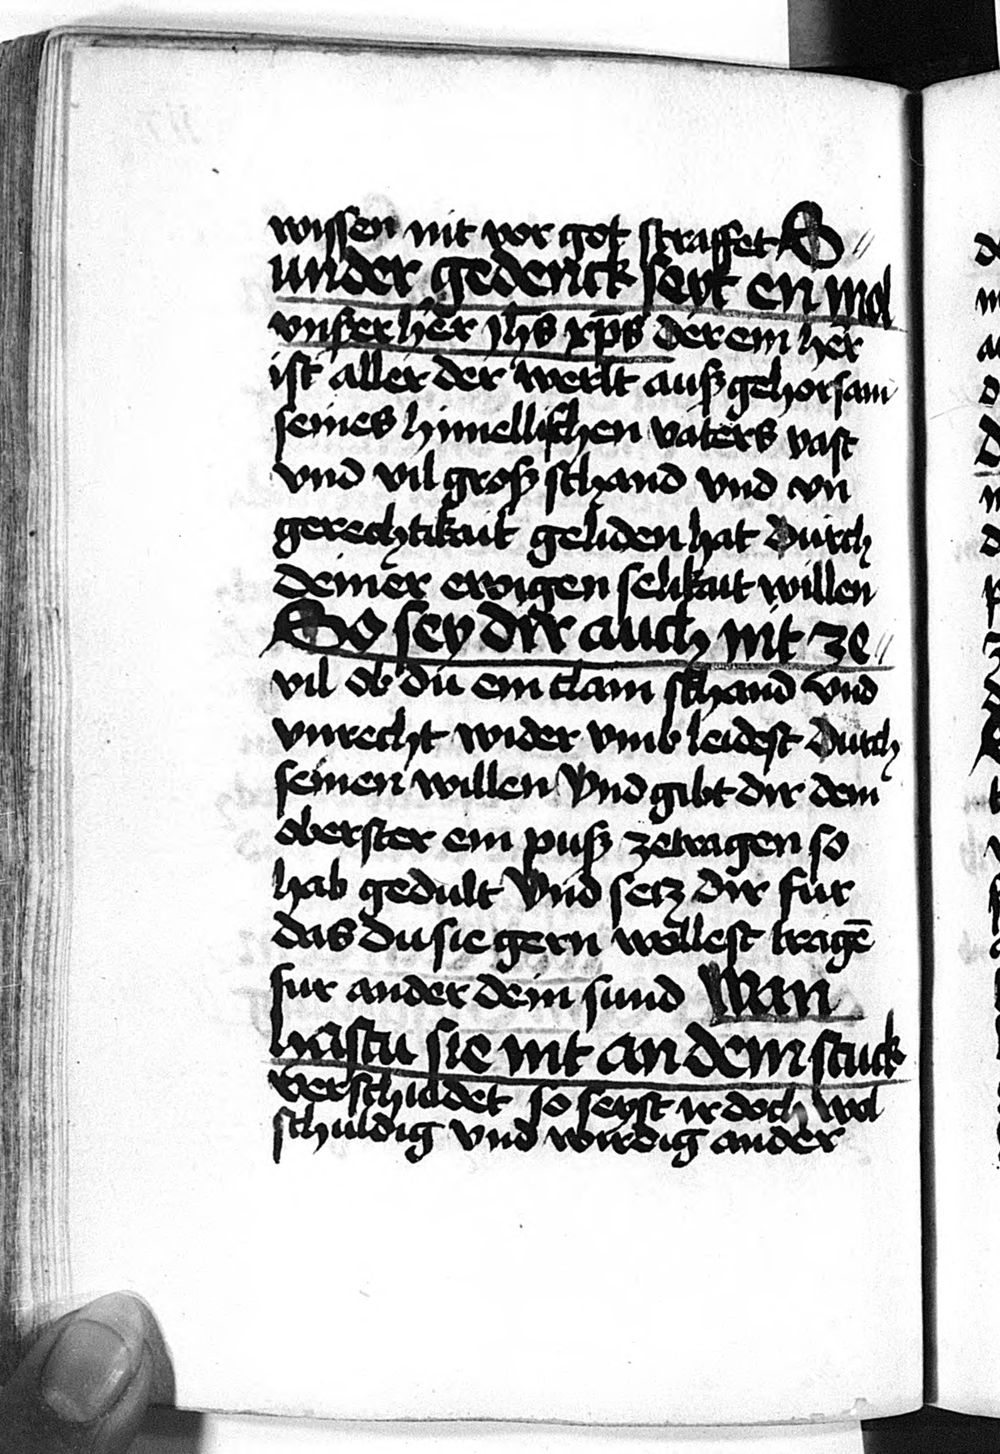 wissen nit vor got straffet S//
under gedenck seyt en mol
vnßer her Jhs xp̄s der ein her
ist aller der werlt auß gehorsam
seines himellischen vaters vast
vnd vil groß schand vnd vn
gerechtikait geliden hat Durch
deiner ewigen selikait willen
So sey dir auch nit ze //
vil ob du ein clain schand vnd
vnrecht wider vmb leidest Durch
seinen willen Vnd gibt dir dein
oberster ein puß zetragen so
hab gedult Vnd setz dir fur
das du sie gern wöllest tragē
fur ander dein sund Wan
hastu sie nit an dem stuck
verschuldet so seyst ir doch wol
schuldig vnd wirdig ander